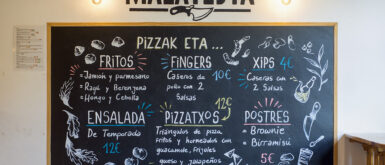 MALATESTA
PIZZAK ETA...
FRITOS
• Jamón y parmesano
• Ragú y Berenjena
• Hongo y Cebolla
FINGERS
Caseros de 10€
pollo con 2
Salsas
XIPS 4€
Caseras con
2 Salsas
ENSALADA
De Temporada
12€
PIZZATXOS 12€
Triángulos de pizza
fritos y horneados con
guacamole, frijoles
queso y jalapeños
POSTRES
• Brownie
• Birramisú
5€